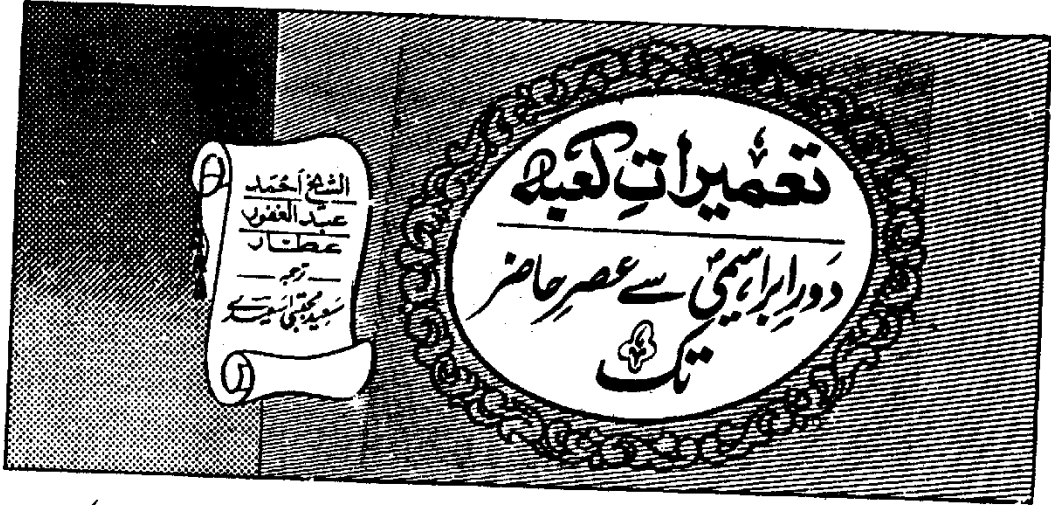 تعمیراتِ کعبہ
دورِ ابراہیمیؑ سے عصرِ حاضر
تک
الشیخ أحمد
عبد الغفور
عطار
ترجمہ
سعید مجتبیٰ سعیدی